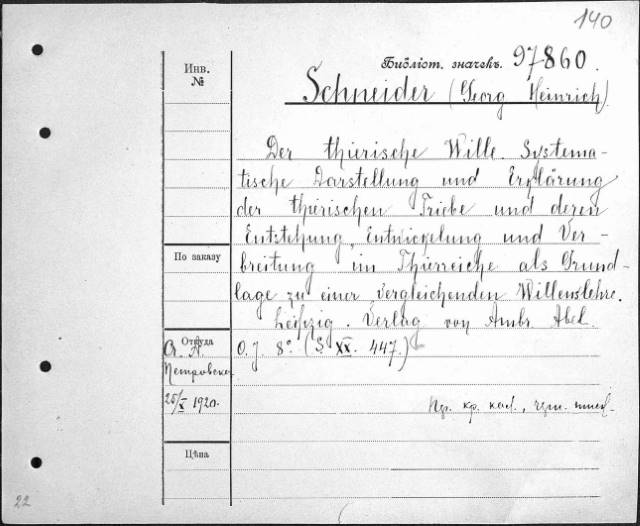 140
Библіот. значекъ. 97860.
Инв. №
Schneider (Georg Heinrich)
Der thierische Wille. Systema-
tische Darstellung und Erklärung
der thierischen Triebe und deren
Entstehung, Entwickelung und Ver-
breitung im Thierreiche als Grund-
lage zu einer vergleichenden Willenslehre.
Leipzig. Verlag von Ambr. Abel.
O. J. 8° (S. XX. 447.)
По заказу
Откуда
Петровска
25/X 1920.
Цѣна
22